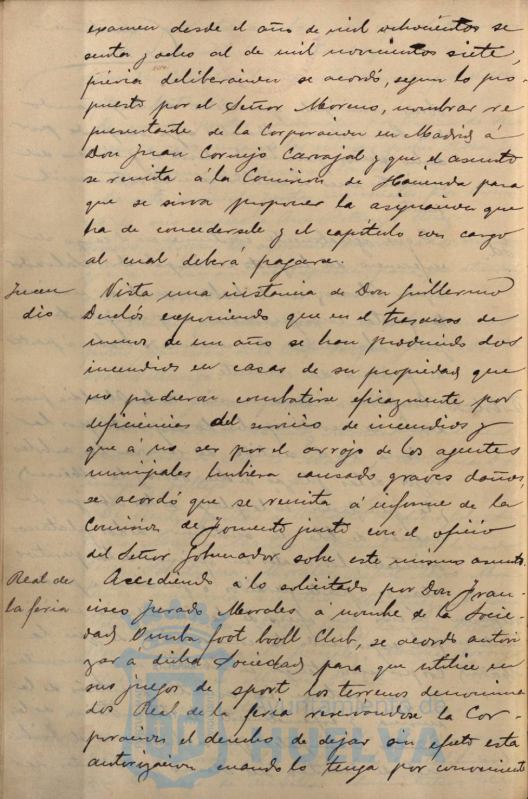 examen desde el año de mil ochocientos se
senta y ocho al de mil novecientos siete,
prévia deliberación se acordó, segun lo pro-
puesto por el Señor Moreno, nombrar re
presentante de la Corporación en Madrid á
Don Juan Cornejo Carvajal y que el asunto
se remita á la Comision de Hacienda para
que se sirva proponer la asignación que
ha de concedersele y el capítulo con cargo
al cual deberá pagarse.
Incen
dio
Vista una instancia de Don Guillermo
Duclós exponiendo que en el trascurso de
menos de un año se han producido dos
incendios en casas de su propiedad que
no pudieron combatirse eficazmente por
deficiencias del servicio de incendios y
que á no ser por el arrojo de los agentes
municipales hubiera causado graves daños,
se acordó que se remita á informe de la
Comision de Fomento junto con el oficio
del Señor Gobernador sobre este mismo asunto.
Real de
la feria
Accediendo á lo solicitado por Don Fran-
cisco Jurado Morales á nombre de la Socie-
dad Onuba foot booll Club, se acordó autori
zar a dicha Sociedad para que utilice en
sus juegos de sport los terrenos denomina
dos Real de la feria reservandose la Cor-
poracion el derecho de dejar sin efecto esta
autorizacion cuando lo tenga por conveniente
Ayuntamiento de
HUELVA